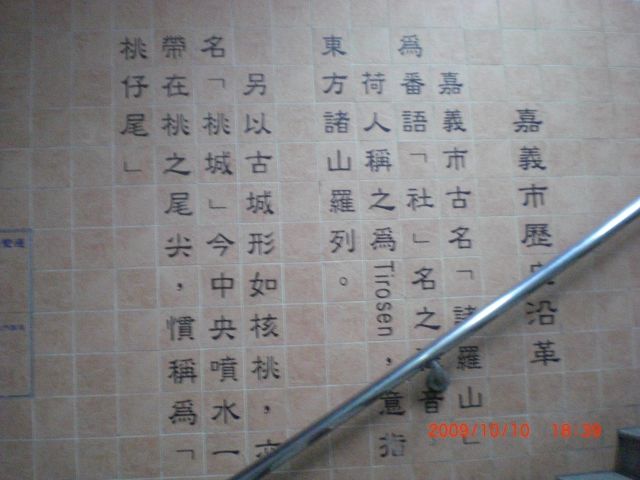 嘉義市歷史沿革
嘉義市古名「諸羅山」
為番語「社」名之音
荷人稱之為Tirosen,意指
東方諸山羅列。
另以古城形如核桃,亦
名「桃城」今中央噴水一
帶在桃之尾尖,慣稱為「
桃仔尾」
2009/10/10 18:39